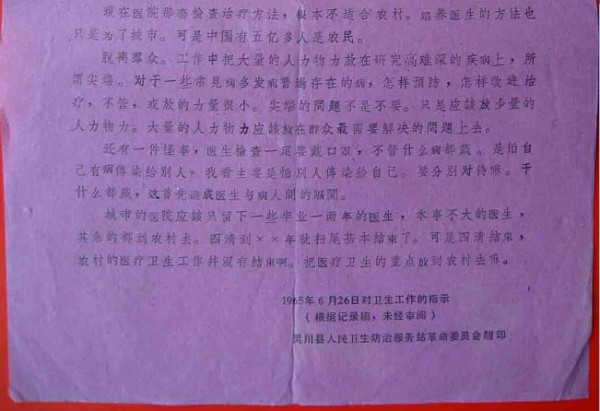 现在医院那套检查治疗方法，根本不适合农村。培养医生的方法也
只是为了城市。可是中国有五亿多人是农民。
脱离群众。工作中把大量的人力物力放在研究高难深的疾病上，所
谓尖端。对于一些常见病多发病普遍存在的病，怎样预防，怎样改进治
疗，不管，或放的力量很小。尖端的問題不是不要。只是应該放少量的
人力物力。大量的人力物力应該放在群众最需要解决的問題上去。
还有一件怪事，医生檢查一定要戴口罩，不管什么病都戴。是怕自
己有病傳染给別人，我看主要是怕別人傳染给自己。要分別对待嘛。干
什么都戴，这首先造成医生与病人間的隔閡。
城市的医院应該只留下一些毕业一两年的医生，本事不大的医生，
其余的都到农村去。四清到××年就扫尾基本结束了。可是四清结束，
农村的医疗卫生工作幷没有结束啊。把医疗卫生的重点放到农村去嘛。
1965年6月26日对卫生工作的指示
（根据记录稿，未经审阅）
吴川县人民卫生防治服务站革命委员会翻印